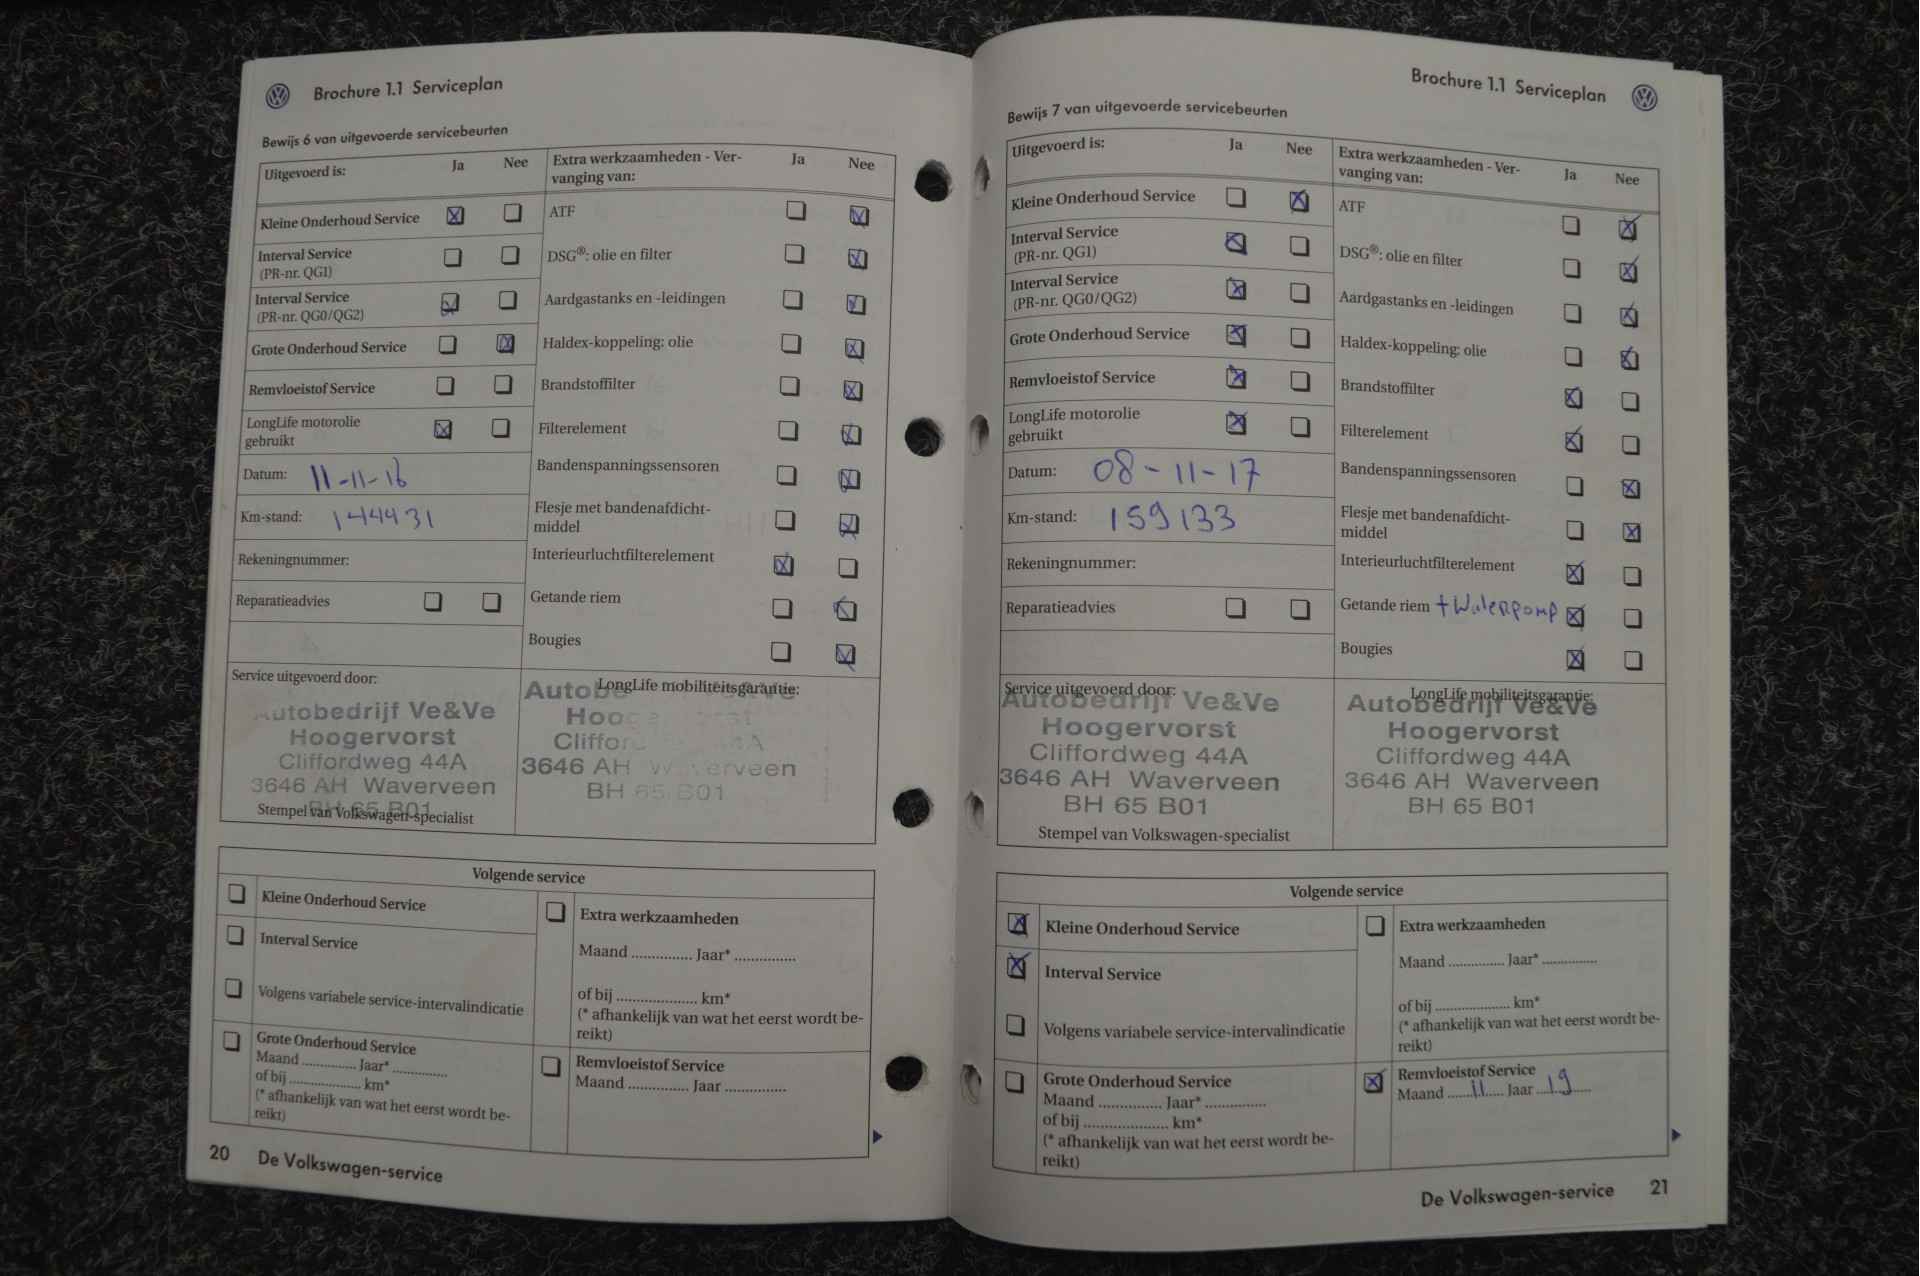 Brochure 1.1 Serviceplan
Bewijs 6 van uitgevoerde servicebeurten
Uitgevoerd is: Ja Nee
Kleine Onderhoud Service
Interval Service
(PR-nr. QG1)
Interval Service
(PR-nr. QG0/QG2)
Grote Onderhoud Service
Remvloeistof Service
LongLife motorolie
gebruikt
Datum: 11-11-16
Km-stand: 144431
Rekeningnummer:
Reparatieadvies
Extra werkzaamheden - Ver-
vanging van: Ja Nee
ATF
DSG®: olie en filter
Aardgastanks en -leidingen
Haldex-koppeling: olie
Brandstoffilter
Filterelement
Bandenspanningssensoren
Flesje met bandenafdicht-
middel
Interieurluchtfilterelement
Getande riem
Bougies
Service uitgevoerd door:
Autobedrijf Ve&Ve
Hoogervorst
Cliffordweg 44A
3646 AH Waverveen
BH 65 B01
Stempel van Volkswagen-specialist
LongLife mobiliteitsgarantie:
Autobedrijf Ve&Ve
Hoogervorst
Cliffordweg 44A
3646 AH Waverveen
BH 65 B01
Volgende service
Kleine Onderhoud Service
Interval Service
Volgens variabele service-intervalindicatie
Grote Onderhoud Service
Maand .............. Jaar* ..............
of bij .................. km*
(* afhankelijk van wat het eerst wordt be-
reikt)
Extra werkzaamheden
Maand ............... Jaar* ...............
of bij .................... km*
(* afhankelijk van wat het eerst wordt be-
reikt)
Remvloeistof Service
Maand ............... Jaar ...............
20 De Volkswagen-service
Brochure 1.1 Serviceplan
Bewijs 7 van uitgevoerde servicebeurten
Uitgevoerd is: Ja Nee
Kleine Onderhoud Service
Interval Service
(PR-nr. QG1)
Interval Service
(PR-nr. QG0/QG2)
Grote Onderhoud Service
Remvloeistof Service
LongLife motorolie
gebruikt
Datum: 08-11-17
Km-stand: 159133
Rekeningnummer:
Reparatieadvies
Extra werkzaamheden - Ver-
vanging van: Ja Nee
ATF
DSG®: olie en filter
Aardgastanks en -leidingen
Haldex-koppeling: olie
Brandstoffilter
Filterelement
Bandenspanningssensoren
Flesje met bandenafdicht-
middel
Interieurluchtfilterelement
Getande riem + Waterpomp
Bougies
Service uitgevoerd door:
Autobedrijf Ve&Ve
Hoogervorst
Cliffordweg 44A
3646 AH Waverveen
BH 65 B01
Stempel van Volkswagen-specialist
LongLife mobiliteitsgarantie:
Autobedrijf Ve&Ve
Hoogervorst
Cliffordweg 44A
3646 AH Waverveen
BH 65 B01
Volgende service
Kleine Onderhoud Service
Interval Service
Volgens variabele service-intervalindicatie
Grote Onderhoud Service
Maand ............... Jaar* ...............
of bij ..................... km*
(* afhankelijk van wat het eerst wordt be-
reikt)
Extra werkzaamheden
Maand .............. Jaar* ..............
of bij ................... km*
(* afhankelijk van wat het eerst wordt be-
reikt)
Remvloeistof Service
Maand ...... 11 .... Jaar ... 19 .....
De Volkswagen-service 21